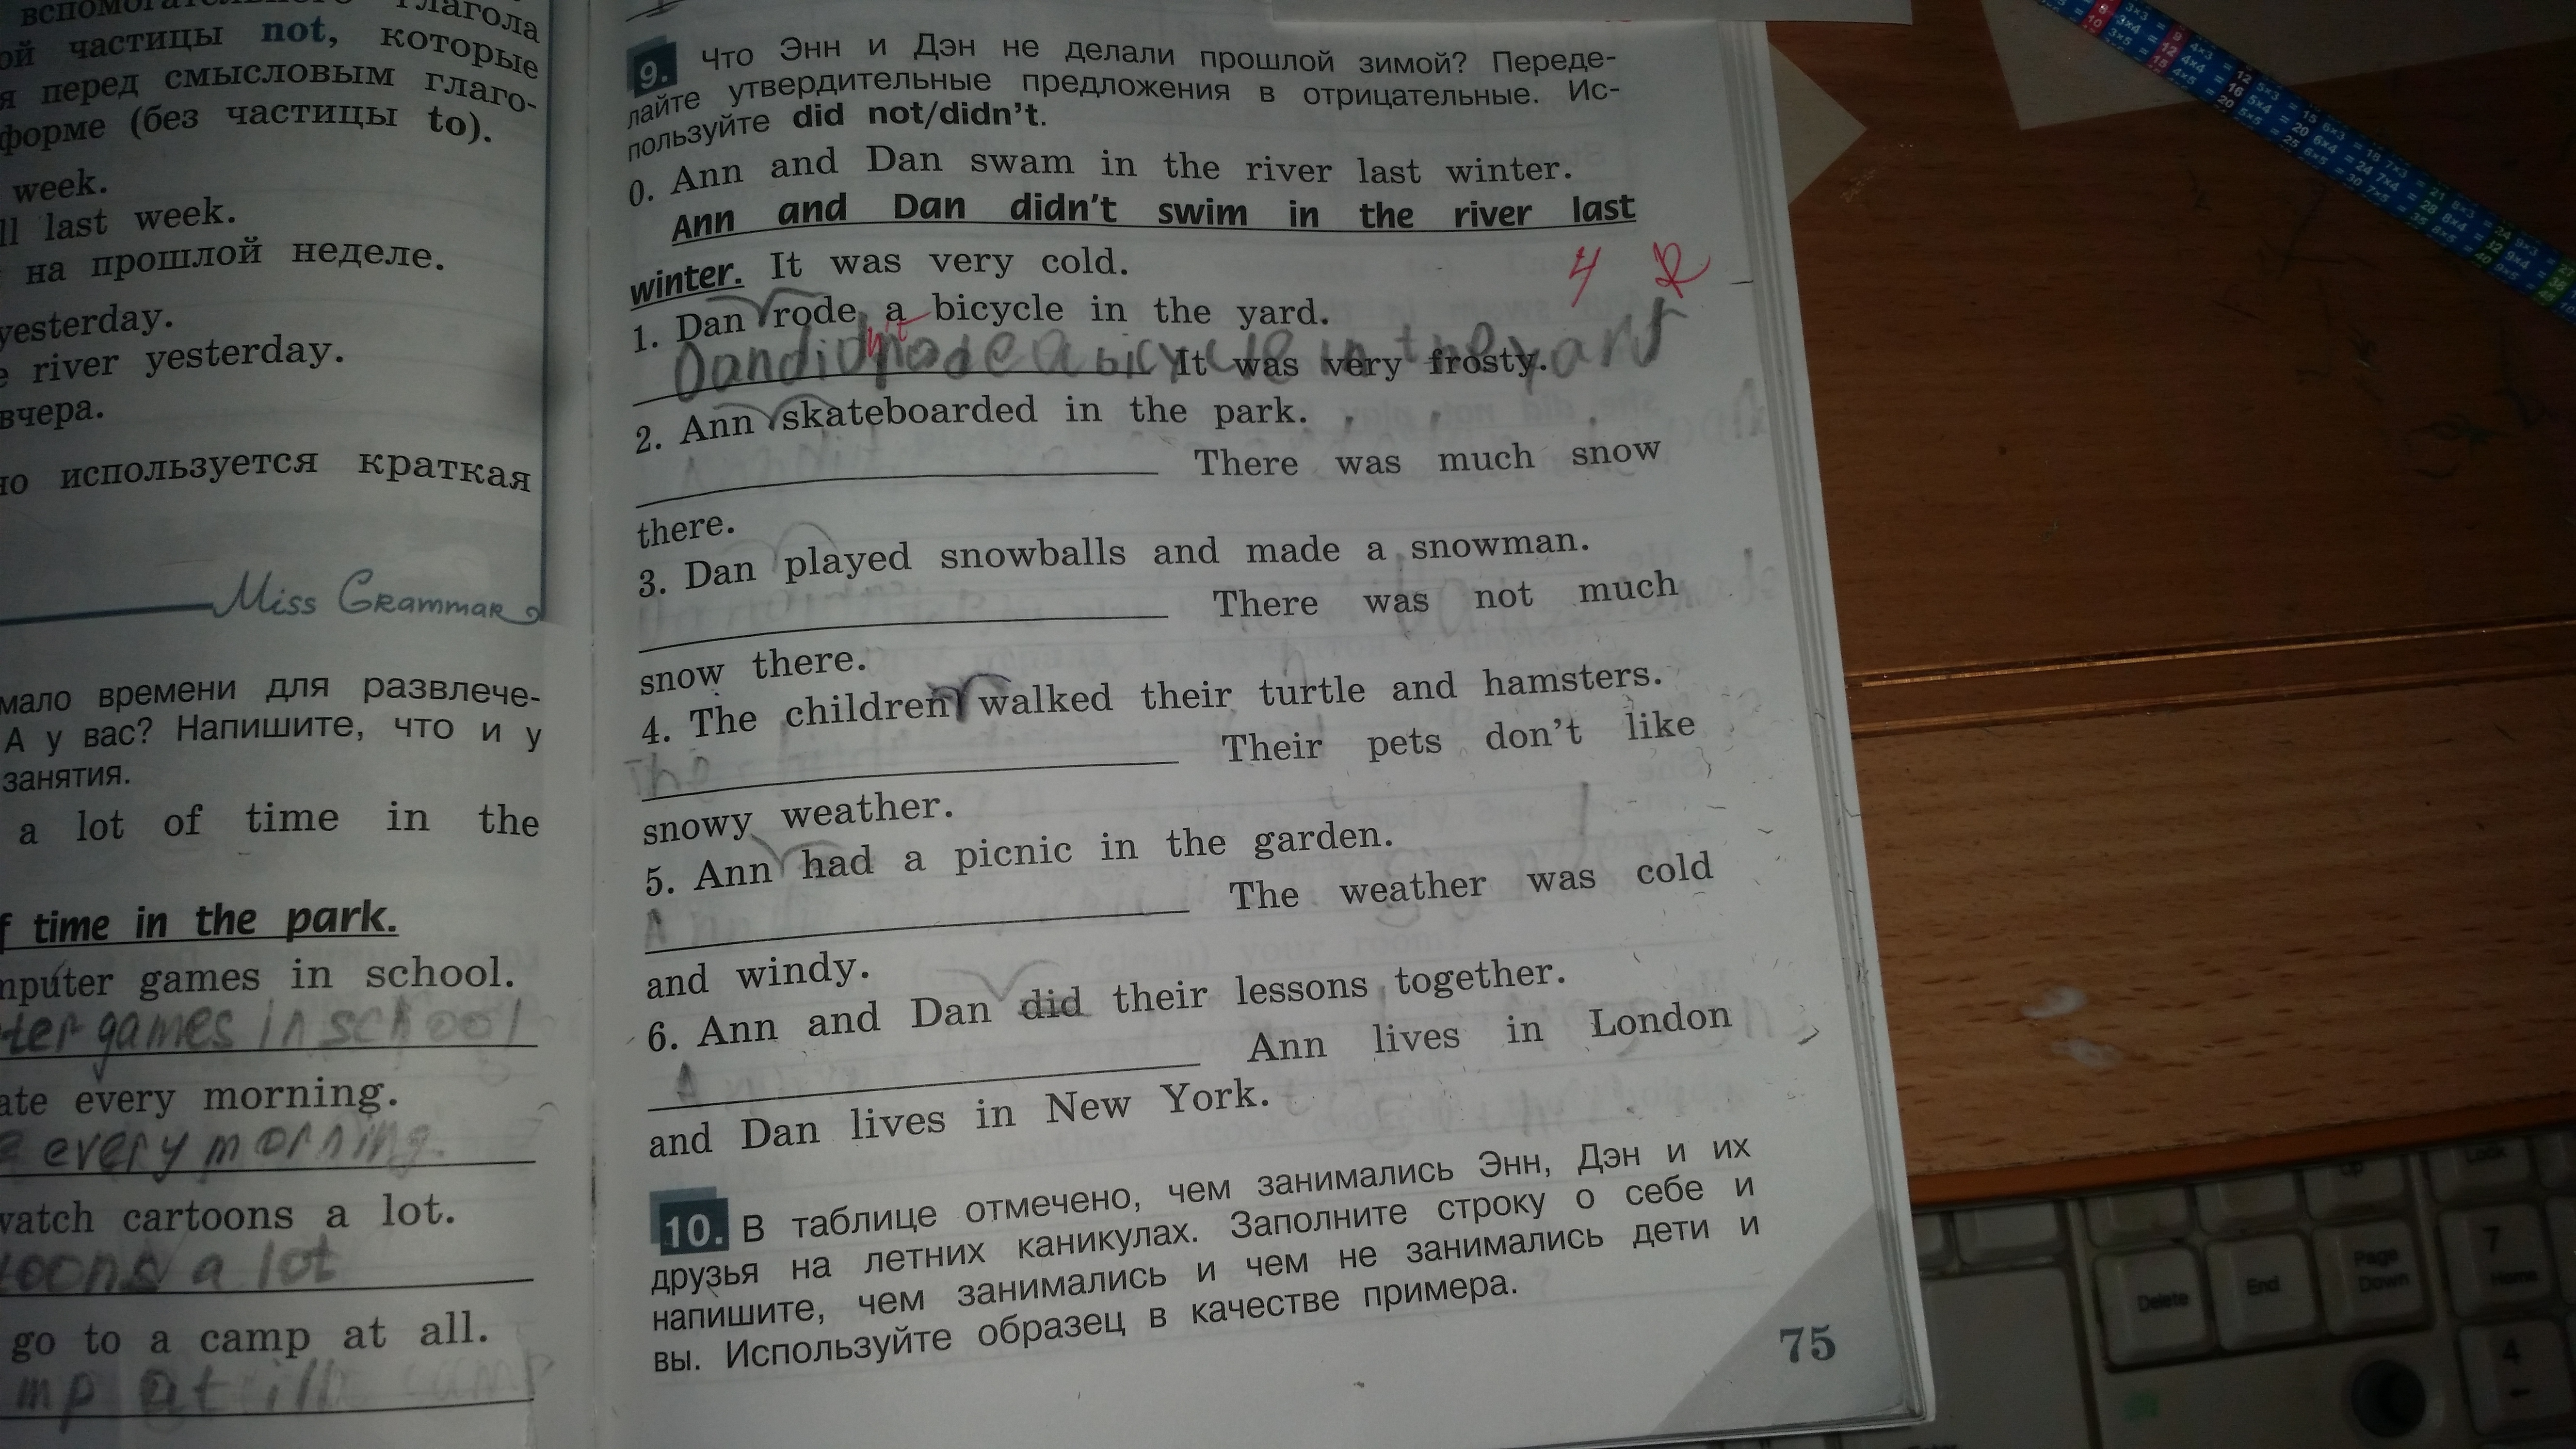 вспомогательного глагола
частицы not, которые
перед смысловым глаго-
форме (без частицы to).
week.
last week.
на прошлой неделе.
yesterday.
river yesterday.
вчера.
используется краткая
Miss Grammar
мало времени для развлече-
А у вас? Напишите, что и у
занятия.
a lot of time in the
time in the park.
games in school.
games in school
every morning.
every morning.
cartoons a lot.
a lot
go to a camp at all.
at
9. Что Энн и Дэн не делали прошлой зимой? Переде-
лайте утвердительные предложения в отрицательные. Ис-
пользуйте did not/didn't.
0. Ann and Dan swam in the river last winter.
Ann and Dan didn't swim in the river last
winter. It was very cold.
4
1. Dan rode a bicycle in the yard.
n't
Dan did rode a bicycle in the yard
It was very frosty.
2. Ann skateboarded in the park.
There was much snow
there.
3. Dan played snowballs and made a snowman.
There was not much
snow there.
4. The children walked their turtle and hamsters.
The Their pets don't like
snowy weather.
5. Ann had a picnic in the garden.
A The weather was cold
and windy.
6. Ann and Dan did their lessons together.
A Ann lives in London
and Dan lives in New York.
10. В таблице отмечено, чем занимались Энн, Дэн и их
друзья на летних каникулах. Заполните строку о себе и
напишите, чем занимались и чем не занимались дети и
вы. Используйте образец в качестве примера.
75
Delete
End
Page
Down
7
Home
4